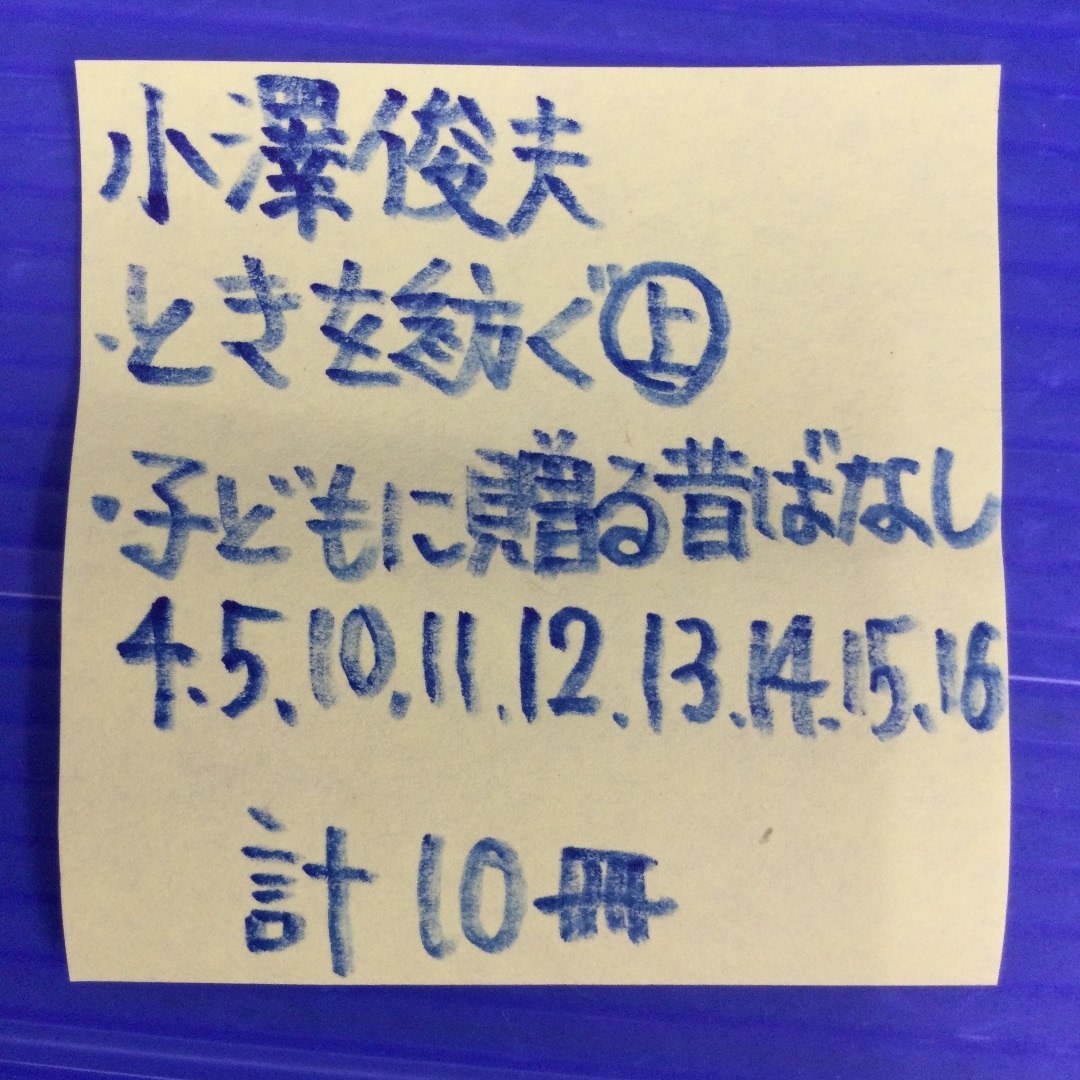 小澤俊夫
・ときを紡ぐ㊤
・子どもに贈る昔ばなし
4.5.10.11.12.13.14.15.16
計10冊